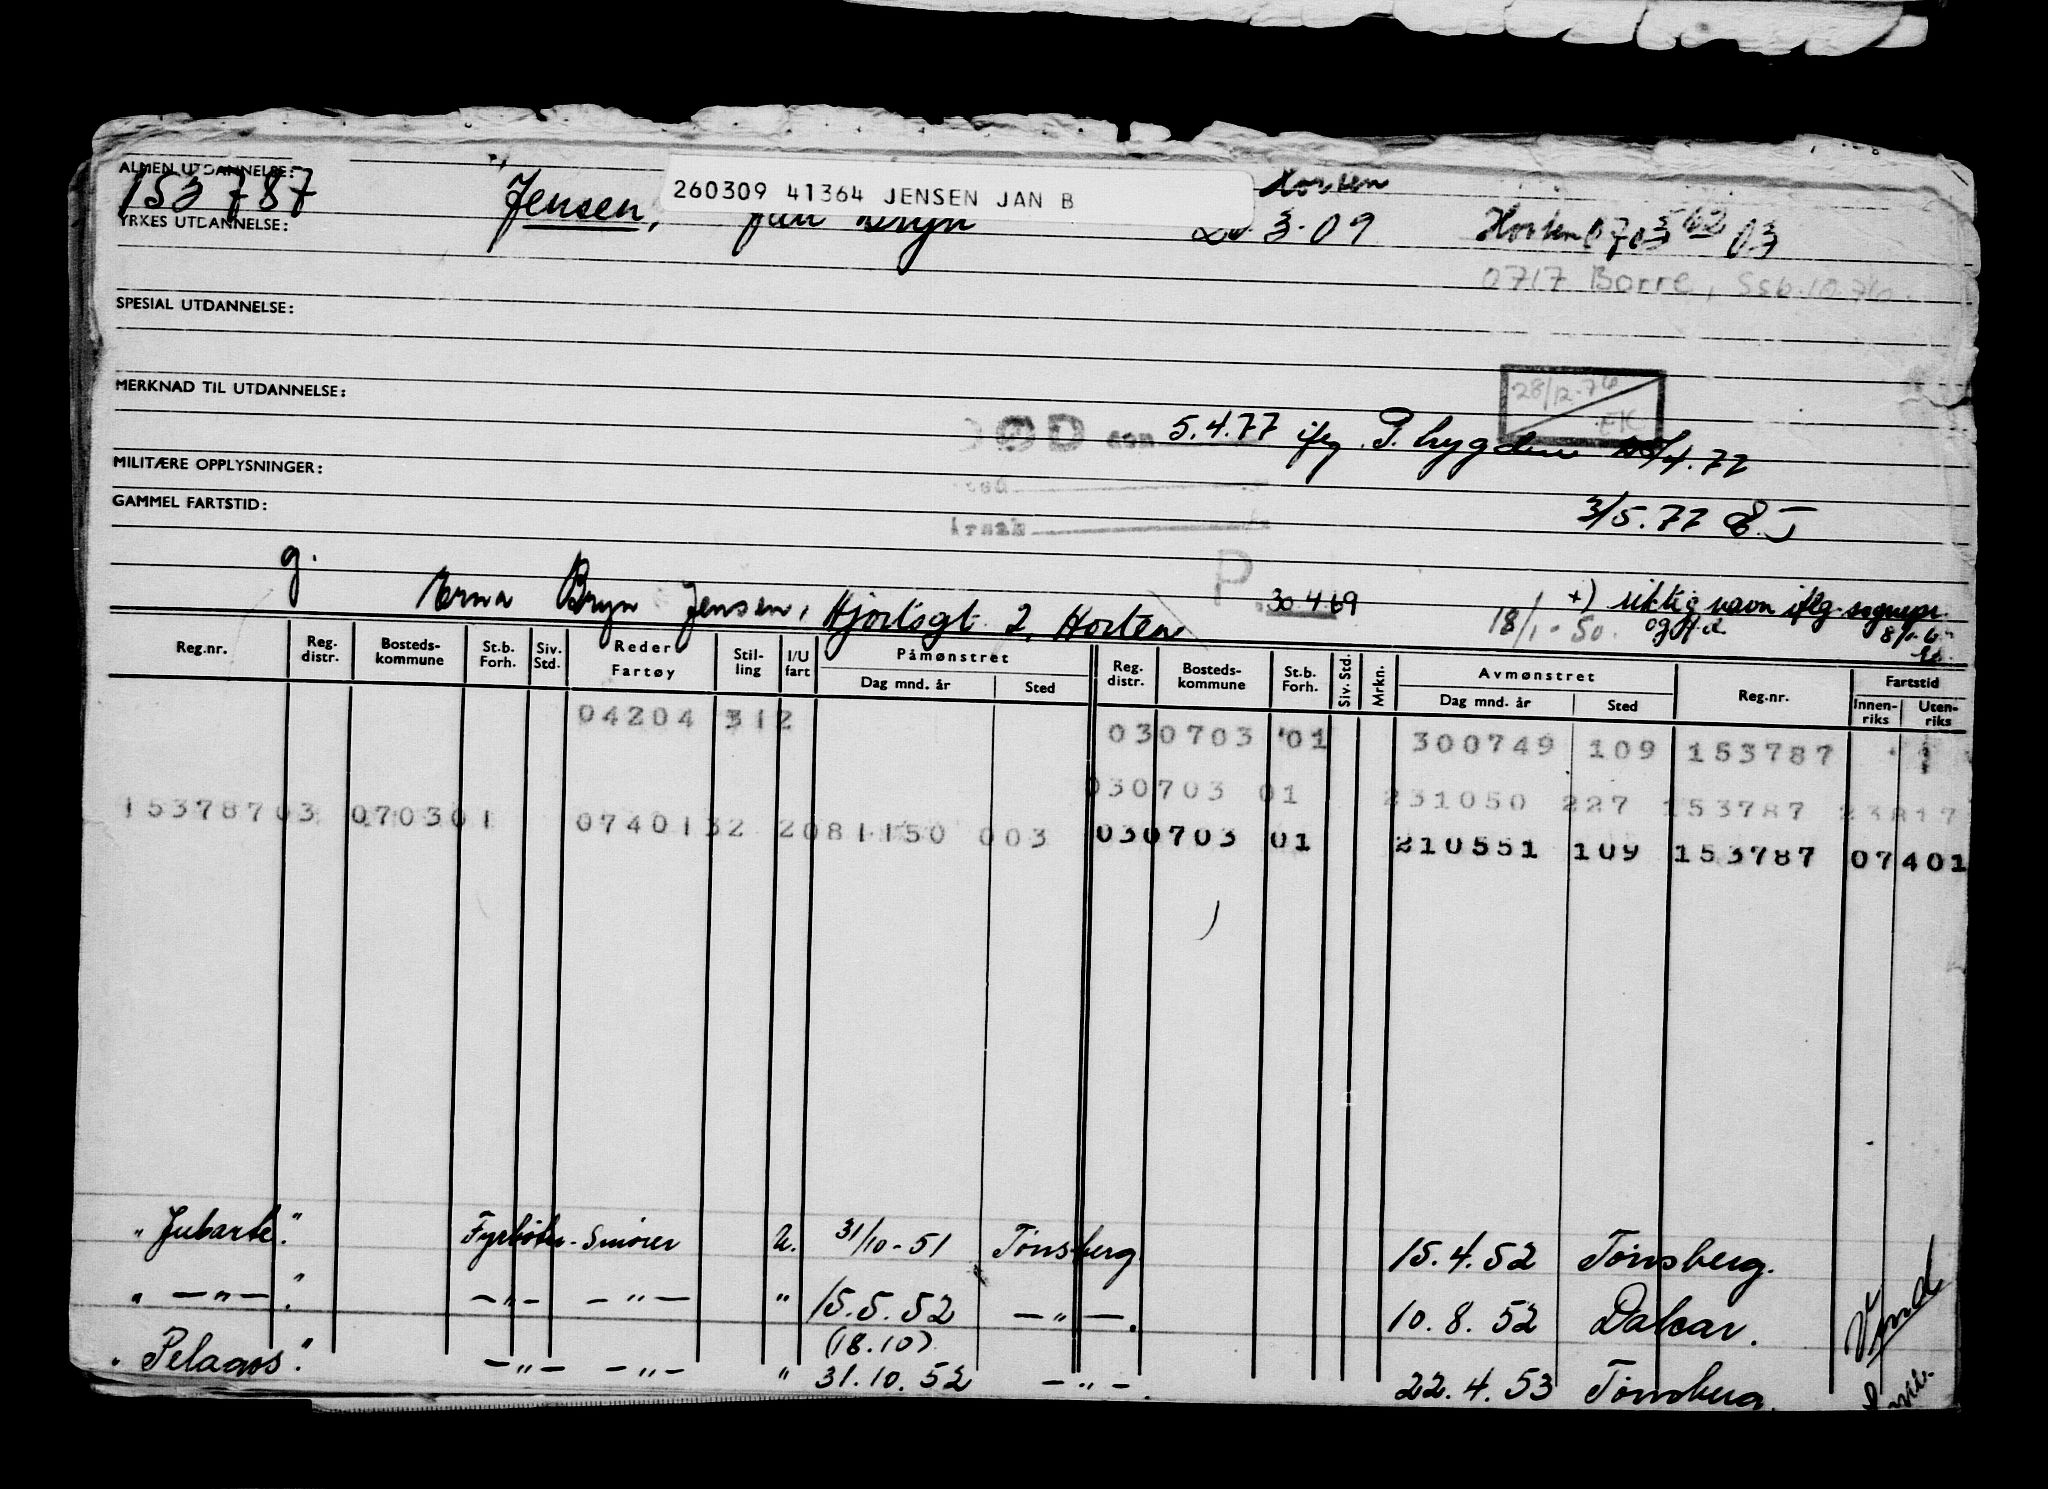 ALMEN UTDANNELSE:
153787 Jensen, Jan Bryn Horten
260309 41364 JENSEN JAN B
YRKES UTDANNELSE:
3.09 Horten 0703 03
0717 Borre, Ssb.10.76.
SPESIAL UTDANNELSE:
MERKNAD TIL UTDANNELSE:
28/12.76
EK
DØD den 5.4.77 ifg. P. trygden /4.77
MILITÆRE OPPLYSNINGER:
GAMMEL FARTSTID:
Årsak
3/5.77
g.
P 30 4 69
+) riktig navn iflg.
18/1-50.
Erna Bryn Jensen, Hjortsgt. 2, Horten
Reg.nr. Reg. distr. Bosteds-kommune St.b. Forh. Siv. Std. Reder Fartøy Stil-ling I/U fart Påmønstret Dag mnd. år Sted Reg. distr. Bosteds-kommune St.b. Forh. Siv. Std. Mrkn. Avmønstret Dag mnd. år Sted Reg.nr. Fartstid Innen-riks Uten-riks
04204 312 030703 01 300749 109 153787
030703 01 231050 227 153787
153787 03 0703 01 07401 32 2 081150 003 030703 01 210551 109 153787 07401
"Jubarte." Fyrbøter-Smører U. 31/10-51 Tønsberg. 15.4.52 Tønsberg.
" — " — ." — " — — " — " 15.5.52 — " — . 10.8.52 Dakar.
(18.10)
"Pelagos." — " — — " — " 31.10.52 — " — . 22.4.53 Tønsberg.